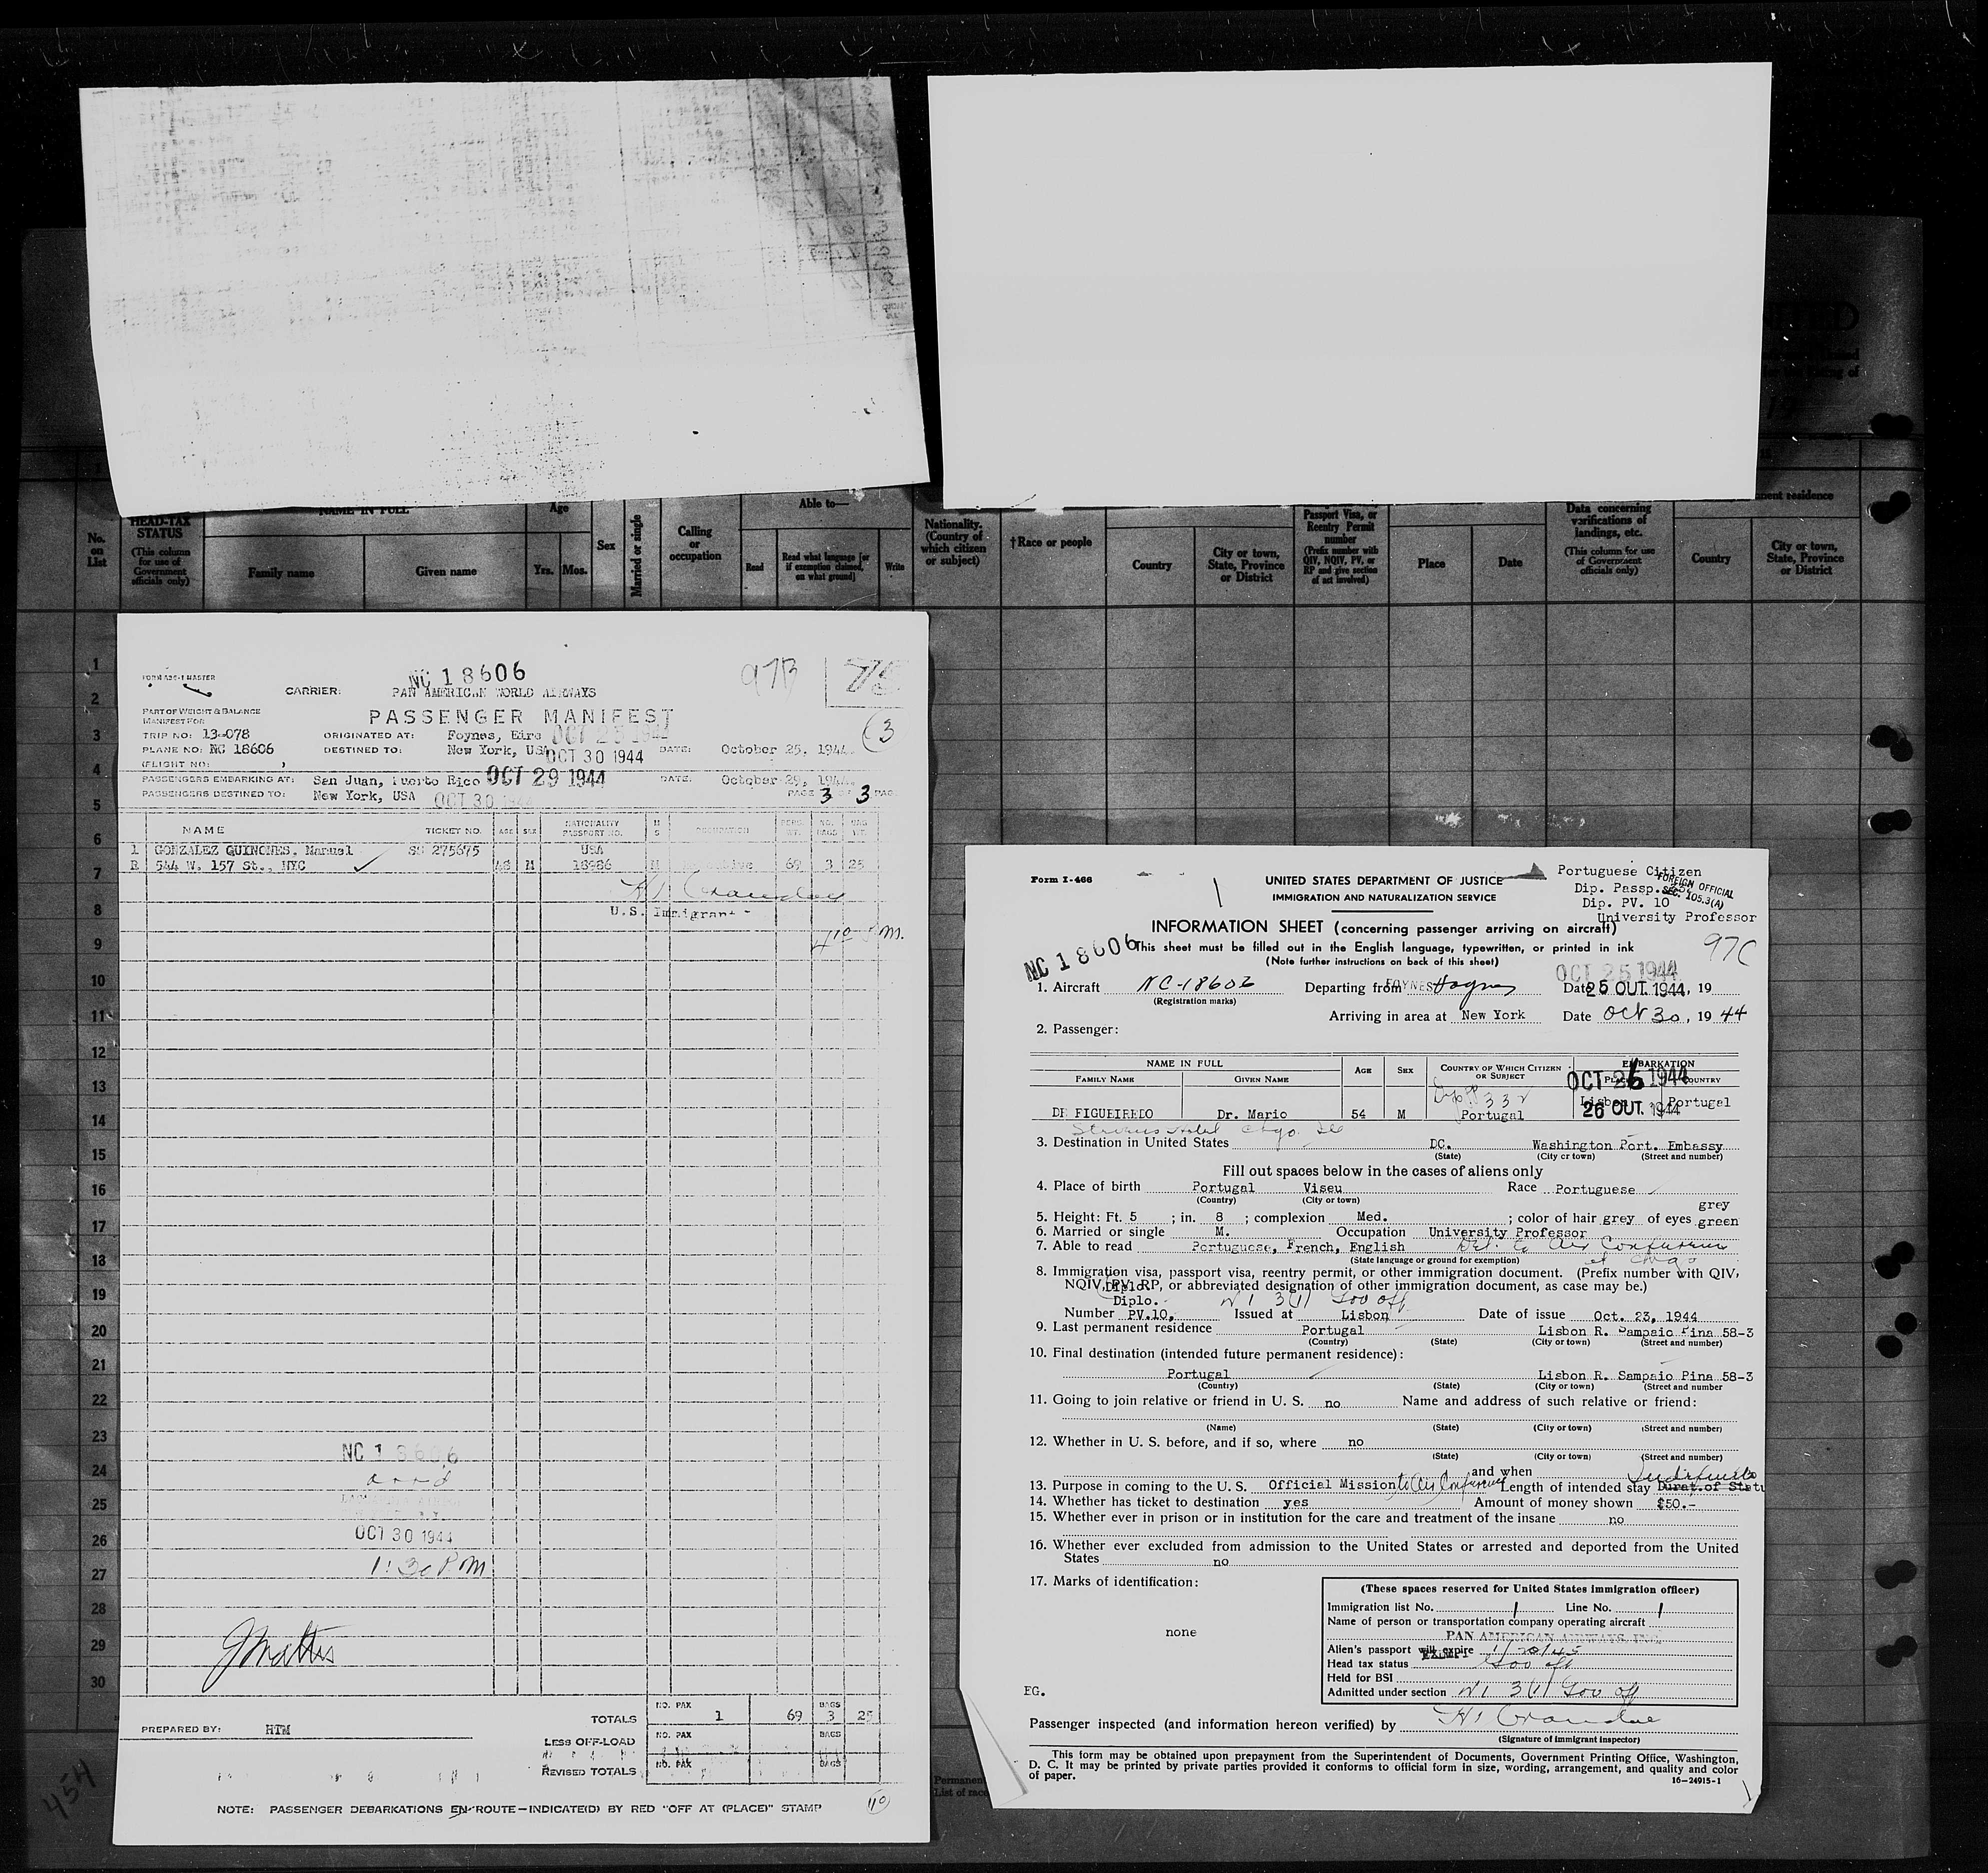 No. on List
HEAD-TAX STATUS
(This column for use of Government officials only)
NAME IN FULL
Family name
Given name
Age
Yrs.
Mos.
Sex
Married or single
Calling or occupation
Able to—
Read
Read what language [or if exemption claimed, on what ground]
Write
Nationality. (Country of which citizen or subject)
†Race or people
Country
City or town, State, Province or District
Passport Visa, or Reentry Permit number
(Prefix number with QIV, NQIV, PV, or RP and give section of act involved)
Place
Date
Data concerning verifications of landings, etc.
(This column for use of Government officials only)
Country
City or town, State, Province or District
1
2
3
4
5
6
7
8
9
10
11
12
13
14
15
16
17
18
19
20
21
22
23
24
25
26
27
28
29
30
454
NC 18606
97B
CARRIER: PAN AMERICAN WORLD AIRWAYS
PART OF WEIGHT & BALANCE
MANIFEST FOR
PASSENGER MANIFEST
OCT 25 1944
3
TRIP NO: 13-078 ORIGINATED AT: Foynes, Eire
PLANE NO: NC 18606 DESTINED TO: New York, USA OCT 30 1944 DATE: October 25, 1944.
(FLIGHT NO: )
PASSENGERS EMBARKING AT: San Juan, Puerto Rico OCT 29 1944 DATE: October 29, 1944.
PASSENGERS DESTINED TO: New York, USA OCT 30 1944 PAGE 3 OF 3 PAG
NAME TICKET NO. AGE SEX NATIONALITY PASSPORT NO. M S OCCUPATION PERS. WT. NO. BAGS BAG WT.
1 GONZALEZ QUINONES, Manuel SG 275675 USA
R 544 W. 157 St., NYC 48 M 18986 M 69 3 25
U.S. Immigrant
NC 18606
OCT 30 1944
1:30 PM
PREPARED BY: HTM
TOTALS NO. PAX 1 69 BAGS 3 25
LESS OFF-LOAD NO. PAX BAGS
REVISED TOTALS NO. PAX BAGS
NOTE: PASSENGER DEBARKATIONS EN-ROUTE—INDICATE(D) BY RED "OFF AT (PLACE)" STAMP
110
Form I-466
UNITED STATES DEPARTMENT OF JUSTICE
IMMIGRATION AND NATURALIZATION SERVICE
Portuguese Citizen
Dip. Passp.
FOREIGN OFFICIAL
SEC. 105.3(A)
Dip. PV. 10
University Professor
97C
INFORMATION SHEET (concerning passenger arriving on aircraft)
This sheet must be filled out in the English language, typewritten, or printed in ink
(Note further instructions on back of this sheet)
NC 18606
OCT 25 1944
1. Aircraft NC-18606 Departing from FOYNES Foynes Date 25 OUT. 1944, 19
(Registration marks)
Arriving in area at New York Date Oct 30, 1944
2. Passenger:
NAME IN FULL
FAMILY NAME GIVEN NAME AGE SEX COUNTRY OF WHICH CITIZEN OR SUBJECT EMBARKATION PLACE COUNTRY
OCT 26 1944
DE FIGUEIREDO Dr. Mario 54 M Portugal Lisbon Portugal
26 OUT. 1944
Stevens Hotel Chgo. Ill
3. Destination in United States DC. Washington Port. Embassy
(State) (City or town) (Street and number)
Fill out spaces below in the cases of aliens only
4. Place of birth Portugal Viseu Race Portuguese
(Country) (City or town)
5. Height: Ft. 5; in. 8; complexion Med.; color of hair grey of eyes grey green
6. Married or single M. Occupation University Professor
7. Able to read Portuguese, French, English Del. to Air Conference at Chgo
(State language or ground for exemption)
8. Immigration visa, passport visa, reentry permit, or other immigration document. (Prefix number with QIV, NQIV, PV, RP, or abbreviated designation of other immigration document, as case may be.)
Diplo.
Diplo. 3(1) Gov off
Number PV.10, Issued at Lisbon Date of issue Oct. 23, 1944
9. Last permanent residence Portugal Lisbon R. Sampaio Pina 58-3
(Country) (State) (City or town) (Street and number)
10. Final destination (intended future permanent residence):
Portugal Lisbon R. Sampaio Pina 58-3
(Country) (State) (City or town) (Street and number
11. Going to join relative or friend in U. S. no Name and address of such relative or friend:
(Name) (State) (City or town) (Street and number)
12. Whether in U. S. before, and if so, where no
(State) (City or town) (Street and number)
and when
13. Purpose in coming to the U. S. Official Mission to Air Conference Length of intended stay Indefinite Durat.of Statu
14. Whether has ticket to destination yes Amount of money shown $50.-
15. Whether ever in prison or in institution for the care and treatment of the insane no
16. Whether ever excluded from admission to the United States or arrested and deported from the United States no
17. Marks of identification:
none
(These spaces reserved for United States immigration officer)
Immigration list No. 1 Line No. 1
Name of person or transportation company operating aircraft
PAN AMERICAN AIRWAYS, INC.
Alien's passport will expire
Head tax status Gov off
Held for BSI
Admitted under section 3(1) Gov off
EG.
Passenger inspected (and information hereon verified) by
(Signature of immigrant inspector)
This form may be obtained upon prepayment from the Superintendent of Documents, Government Printing Office, Washington, D. C. It may be printed by private parties provided it conforms to official form in size, wording, arrangement, and quality and color of paper.
16—24915-1